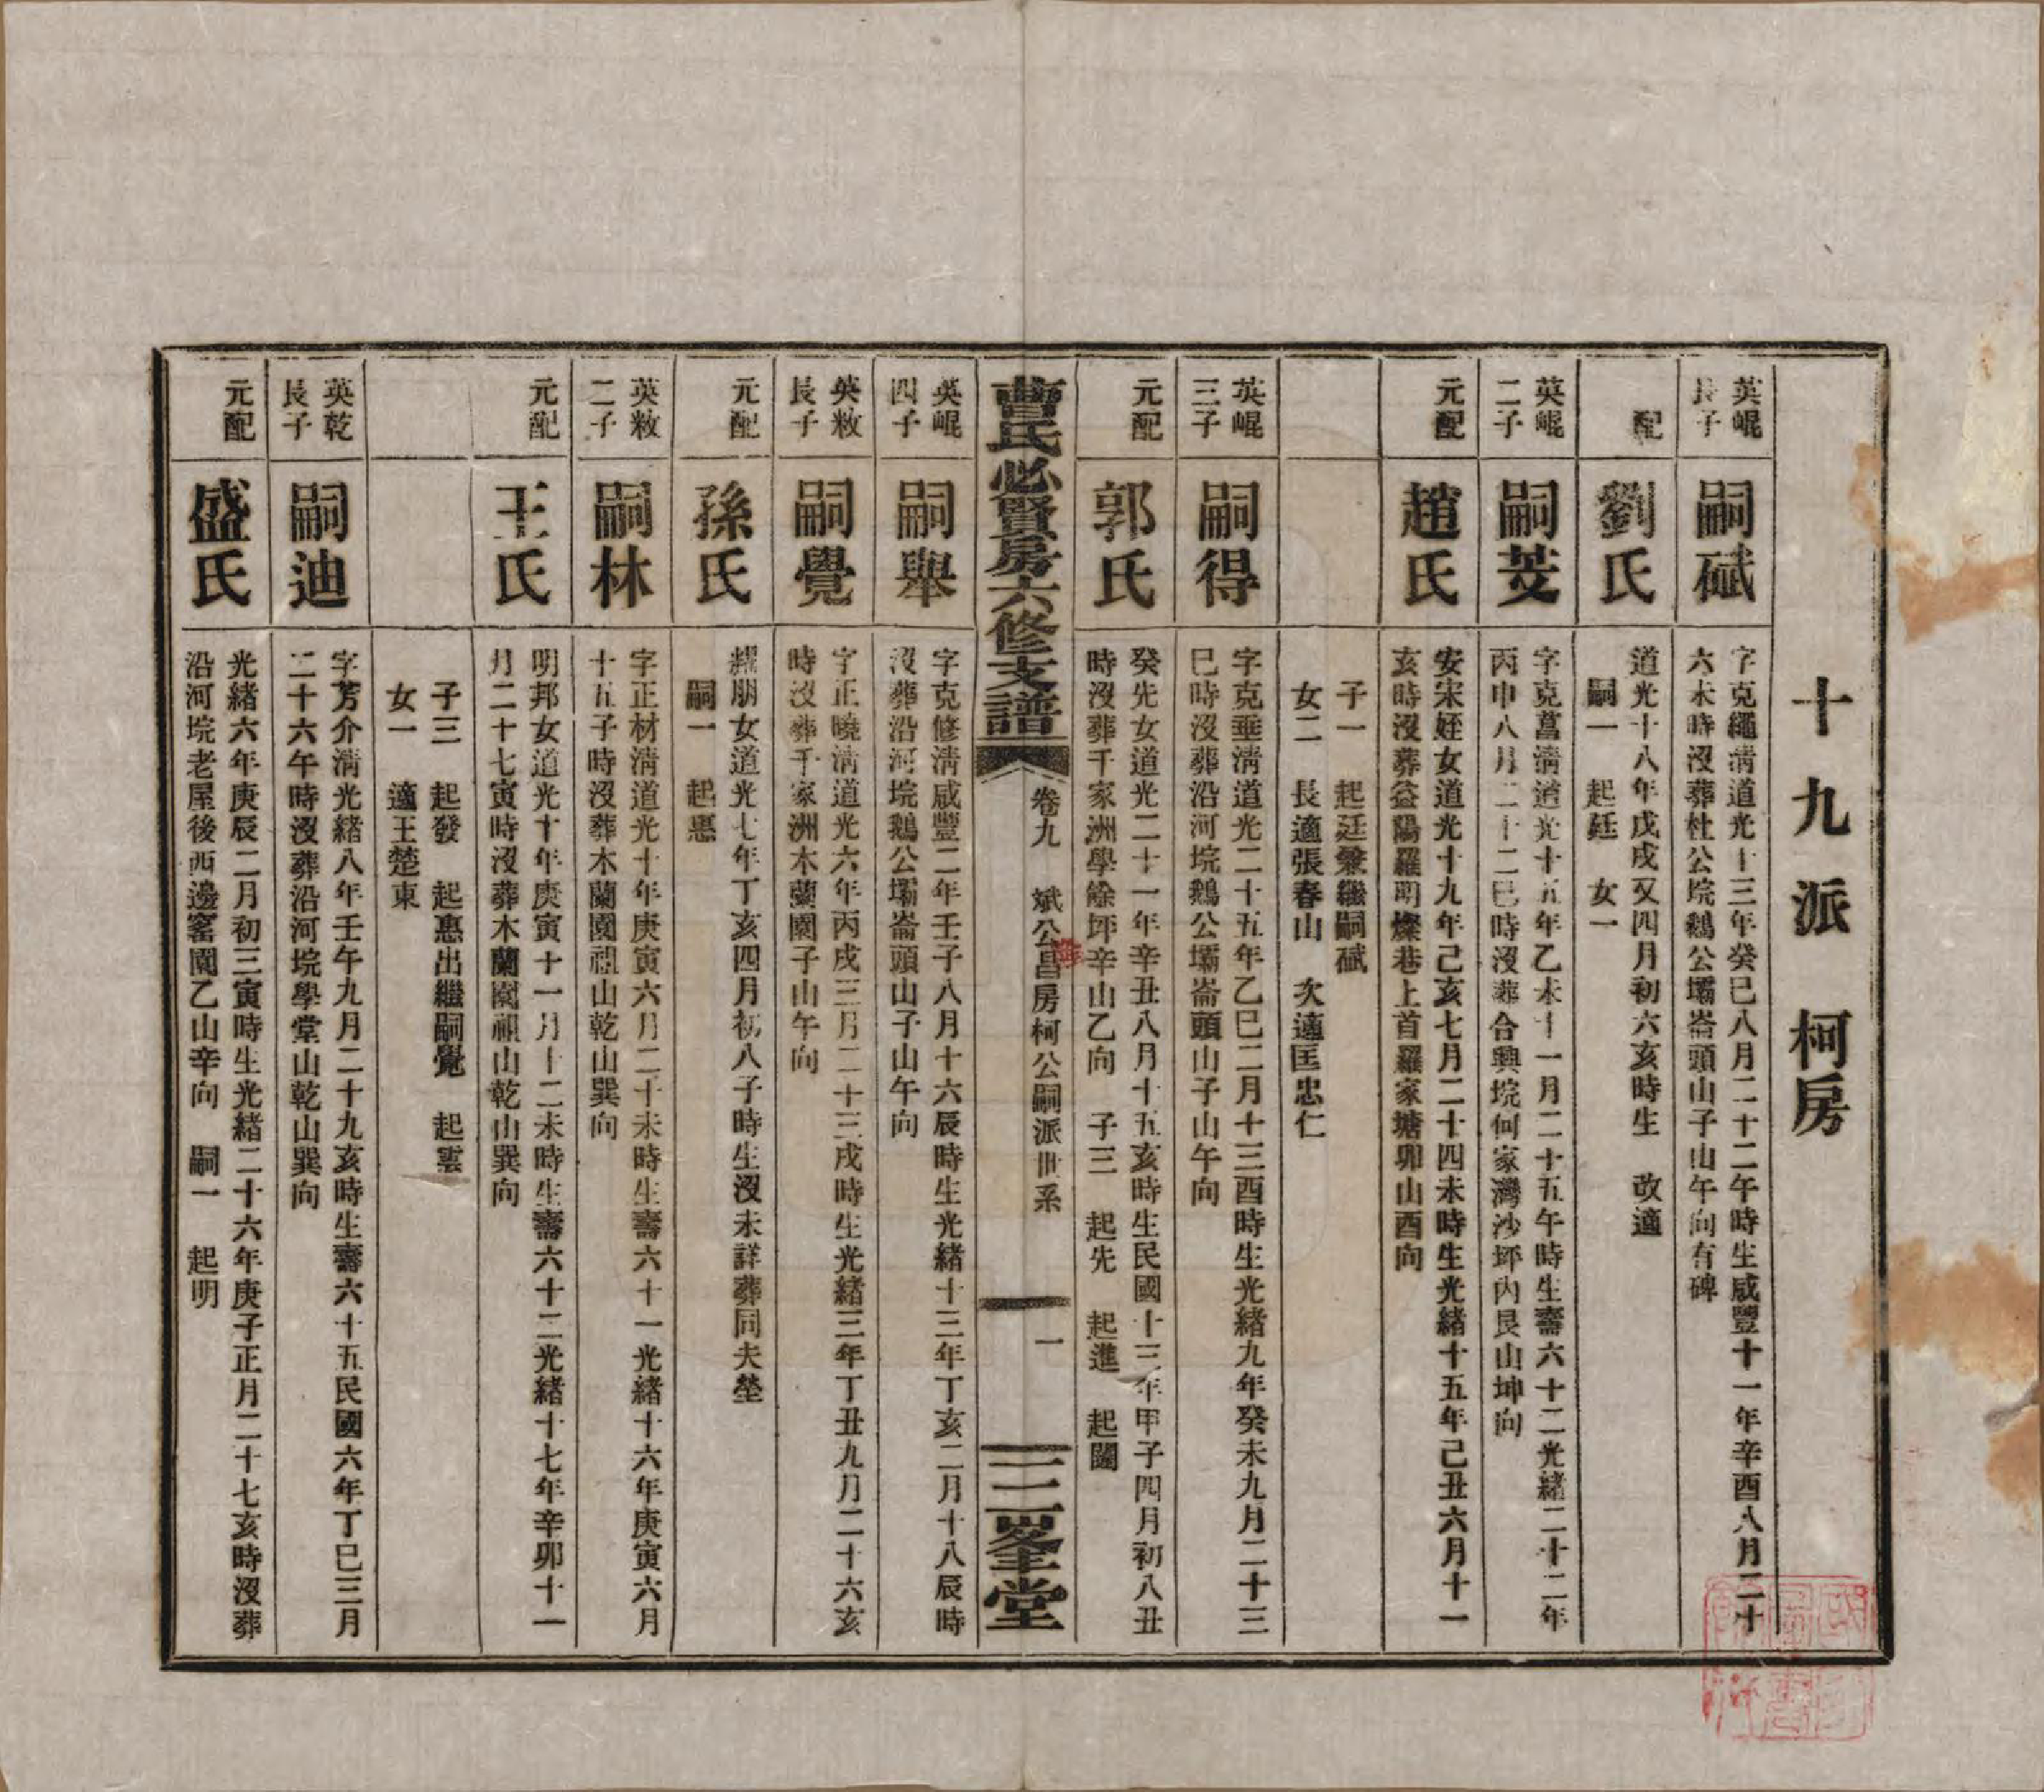 十九派 柯房
英崐
長子
嗣碔
字克繩清道光十三年癸巳八月二十二午時生咸豐十一年辛酉八月二十
六未時沒葬杜公垸鵝公壩崙頭山子山午向有碑
配
劉氏
道光十八年戊戌又四月初六亥時生 改適
嗣一 起廷 女一
英崐
二子
嗣芟
字克菖清道光十五年乙未十一月二十五午時生壽六十二光緒二十二年
丙申八月二十二巳時沒葬合興垸何家灣沙坪內艮山坤向
元配
趙氏
安宋姪女道光十九年己亥七月二十四未時生光緒十五年己丑六月十一
亥時沒葬益陽羅明燦巷上首羅家塘卯山酉向
子一 起廷兼繼嗣碔
女二 長適張春山 次適匡忠仁
英崐
三子
嗣得
字克垂清道光二十五年乙巳二月十三酉時生光緒九年癸未九月二十三
巳時沒葬沿河垸鵝公壩崙頭山子山午向
元配
郭氏
癸先女道光二十一年辛丑八月十五亥時生民國十三年甲子四月初八丑
時沒葬千家洲學餘坪辛山乙向 子三 起先 起進 起闓
曹氏必賢房六修支譜
卷九 斌公昌房柯公嗣派世系
一
三峑堂
英崐
四子
嗣舉
字克修清咸豐二年壬子八月十六辰時生光緒十三年丁亥二月十八辰時
沒葬沿河垸鵝公壩崙頭山子山午向
英敉
長子
嗣覺
字正曉清道光六年丙戌三月二十三戌時生光緒三年丁丑九月二十六亥
時沒葬千家洲木蘭園子山午向
元配
孫氏
耀朋女道光七年丁亥四月初八子時生沒未詳葬同夫塋
嗣一 起惠
英敉
二子
嗣林
字正材清道光十年庚寅六月二十未時生壽六十一光緒十六年庚寅六月
十五子時沒葬木蘭園祖山乾山巽向
元配
王氏
明邦女道光十年庚寅十一月十二未時生壽六十二光緒十七年辛卯十一
月二十七寅時沒葬木蘭園祖山乾山巽向
子三 起發 起惠出繼嗣覺 起雲
女一 適王楚東
英乾
長子
嗣迪
字芳介清光緒八年壬午九月二十九亥時生壽六十五民國六年丁巳三月
二十六午時沒葬沿河垸學堂山乾山巽向
元配
盛氏
光緒六年庚辰二月初三寅時生光緒二十六年庚子正月二十七亥時沒葬
沿河垸老屋後西邊窰園乙山辛向 嗣一 起明